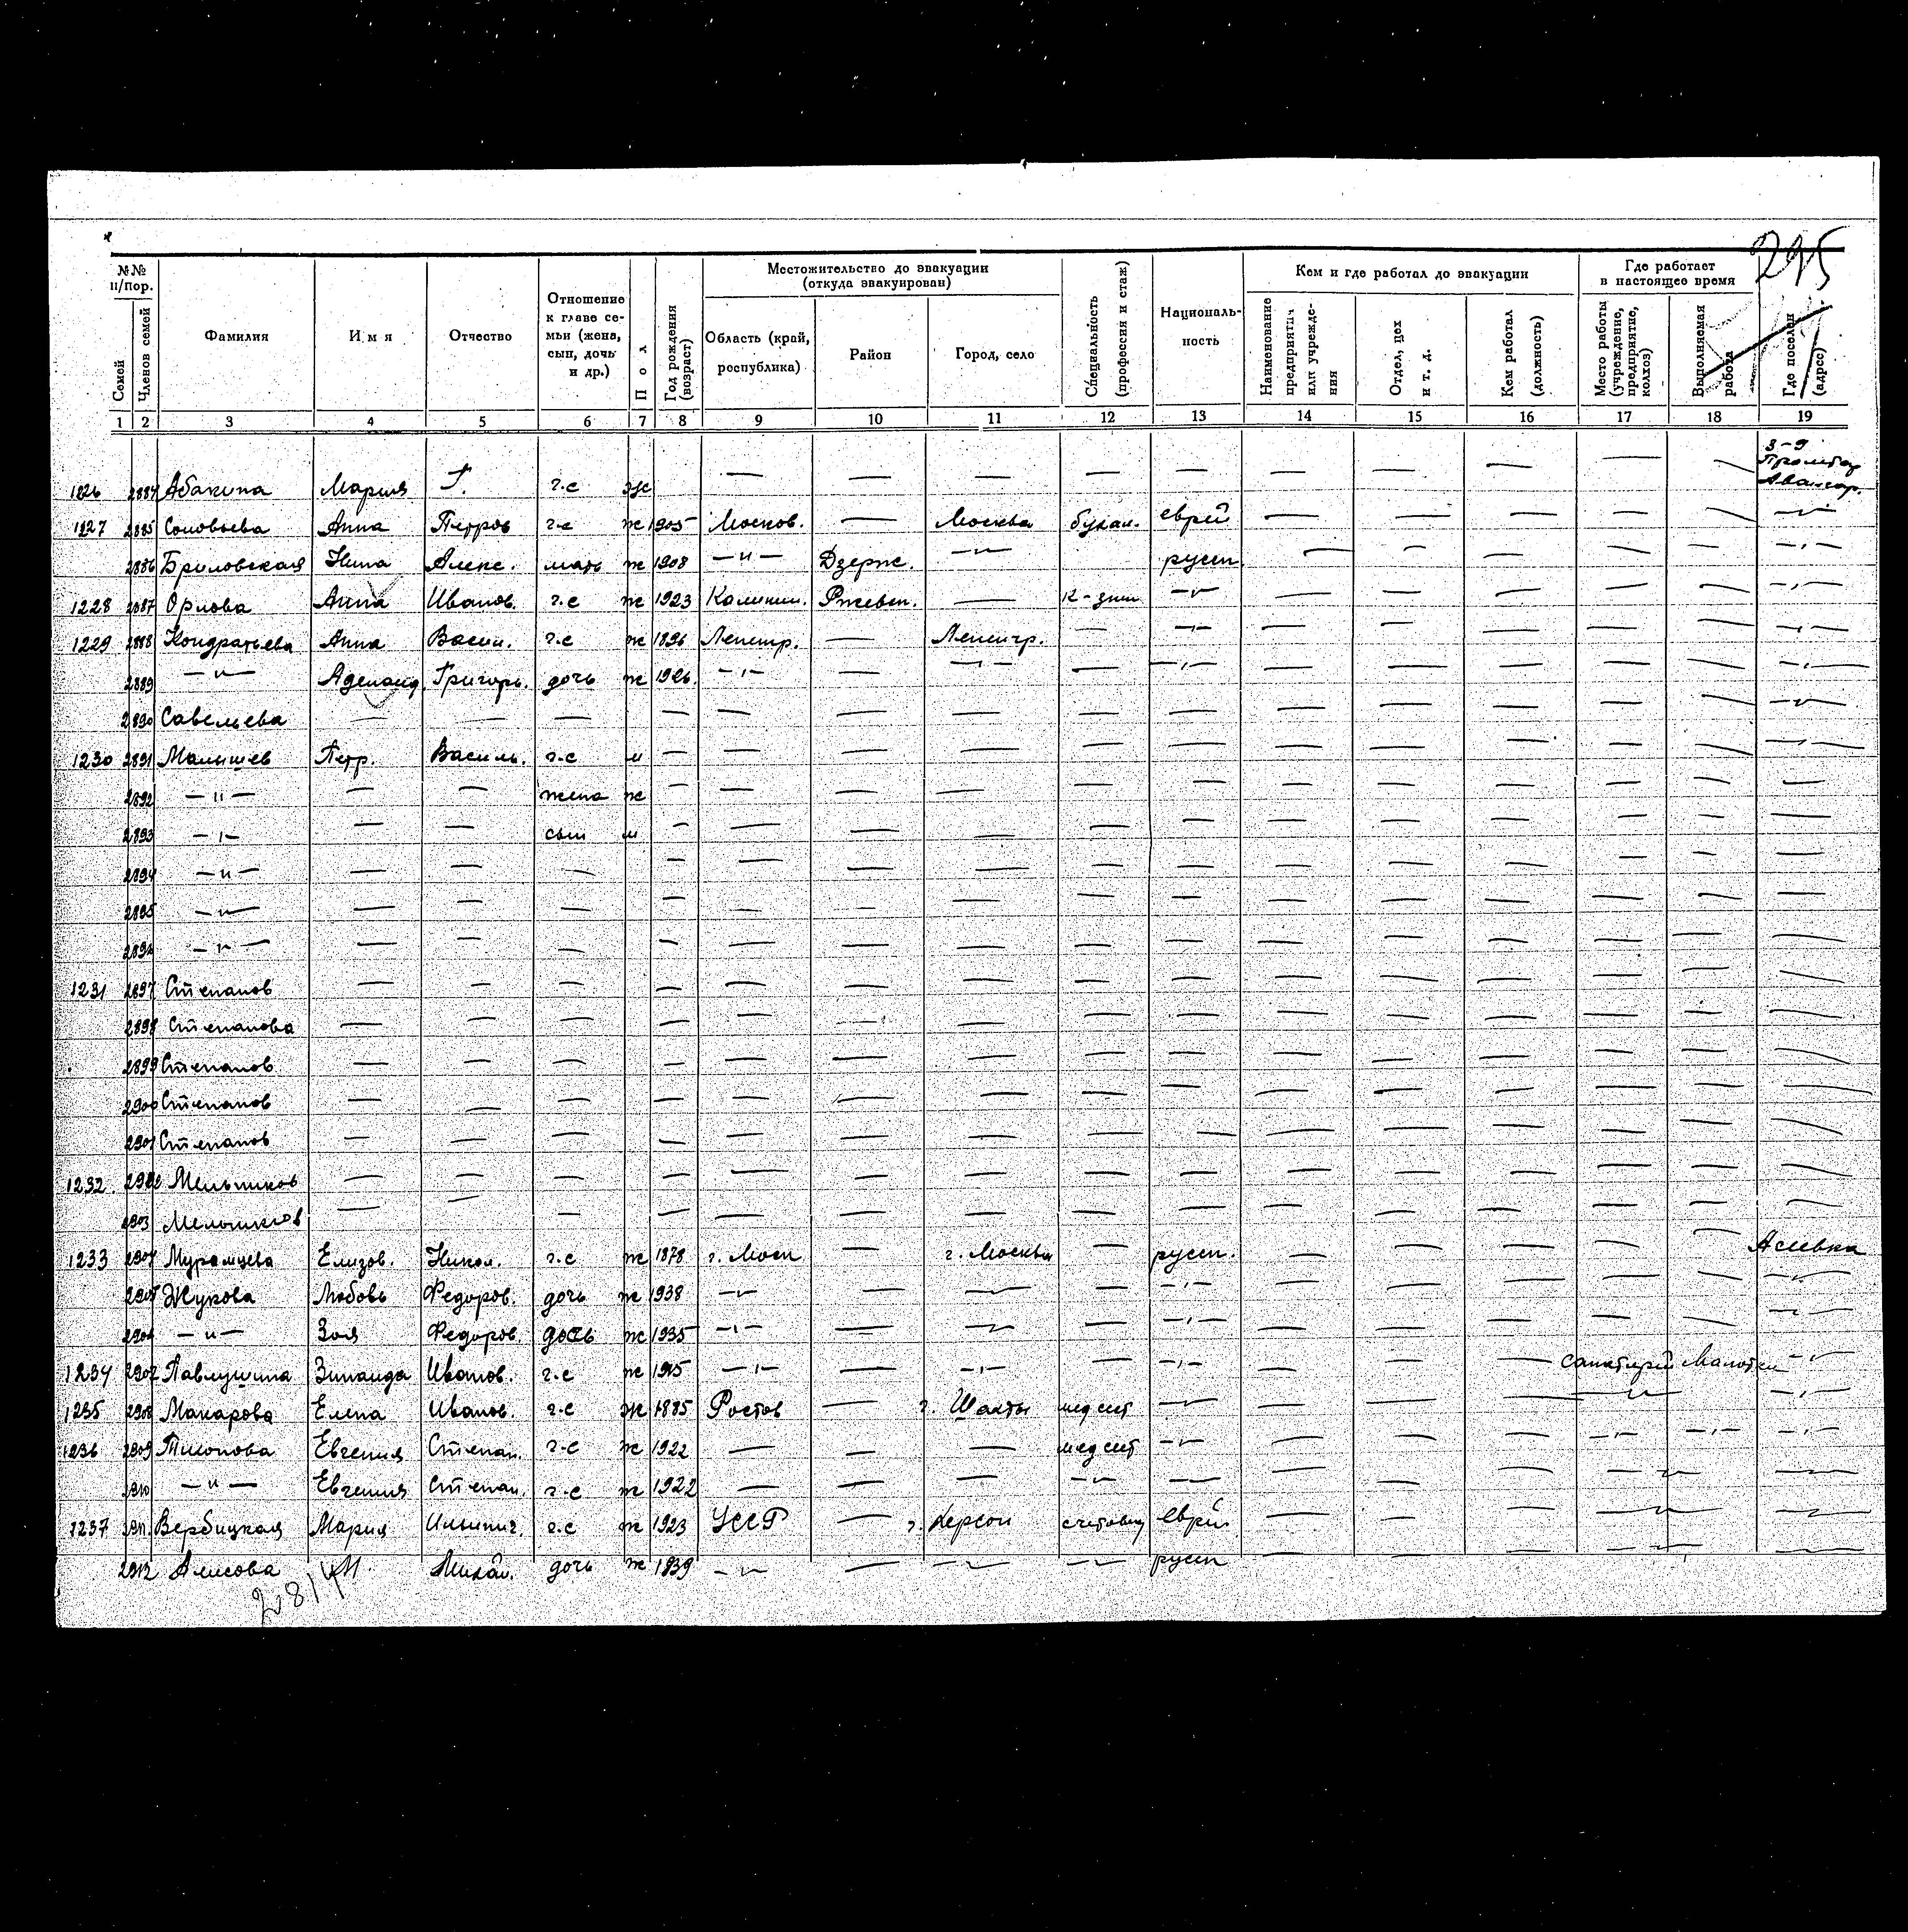 295
№№ п/пор.
Семей
Членов семей
Фамилия
Имя
Отчество
Отношение к главе семьи (жена, сын, дочь и др.)
Пол
Год рождения (возраст)
Местожительство до эвакуации (откуда эвакуирован)
Область (край, республика)
Район
Город, село
Специальность (профессия и стаж)
Националь-ность
Кем и где работал до эвакуации
Наименование предприятия или учрежде-ния
Отдел, цех и т. д.
Кем работал (должность)
Где работает в настоящее время
Место работы (учреждение, предприятие, колхоз)
Выполняемая работа
Где поселен (адрес)
1 2 3 4 5 6 7 8 9 10 11 12 13 14 15 16 17 18 19
1226 2884 Абакина Мария Г. г.с ж — — — — — — — — — — З-д
1227 2885 Соловьева Анна Петров г-с ж 1905 Москов. — Москва бухал. еврей — — — — — -"-
2886 Бриловская Нина Алекс. мать ж 1908 -"- Дзерж. -"- — русск. — — — — — -"-
1228 2887 Орлова Анна Иванов. г.с ж 1923 Калинин. Ржевск. — -"- — — — — — -"-
1229 2888 Кондратьева Анна Васил. г-с ж 1896 Ленингр. — Ленингр. — -"- — — — — — -"-
2889 -"- Аделаид. Григорь. дочь ж 1926. -"- — -"- — -"- — — — — — -"-
2890 Савельева — — — — — — — — — — — — — — -"-
1230 2891 Малышев Петр. Василь. г-с м — — — — — — — — — — — -"-
2892 -"- — — жена ж — — — — — — — — — — — —
2893 -"- — — сын м — — — — — — — — — — — —
2894 -"- — — — — — — — — — — — — — — —
2895 -"- — — — — — — — — — — — — — — —
2896 -"- — — — — — — — — — — — — — — —
1231 2897 Степанов — — — — — — — — — — — — — — —
2898 Степанова — — — — — — — — — — — — — — —
2899 Степанов — — — — — — — — — — — — — — —
2900 Степанов — — — — — — — — — — — — — — —
2901 Степанов — — — — — — — — — — — — — — —
1232 2902 Мельников — — — — — — — — — — — — — — —
2903 Мельников — — — — — — — — — — — — — — —
1233 2904 Мурамцева Елизов. Никол. г.с ж 1878 г. Моск — г. Москва — русск. — — — — —
2905 Жукова Любовь Федоров. дочь ж 1938 -"- — -"- — -"- — — — — — -"-
2906 -"- Зоя Федоров. дочь ж 1935 -"- — -"- — -"- — — — — — -"-
1234 2907 Павлушина Зинаида Иванов. г.с ж 1915 -"- — -"- — -"- — — — -"-
1235 2908 Макарова Елена Иванов. г-с ж 1885 Ростов — г. Шахты мед сест -"- — — — -"- -"-
1236 2909 Тихонова Евгения Степан. г-с ж 1922 — — — мед сест -"- — — — -"- -"- -"-
2910 -"- Евгения Степан. г-с ж 1922 — — — -"- -"- — — — -"- -"-
1237 2911. Вербицкая Мария Ильинич. г.с ж 1923 УССР — г. Херсон счетовод еврей — — — -"- -"-
2912 Алисова М. Михай. дочь ж 1939 -"- — -"- -"- русск — — — -"- -"-
2814